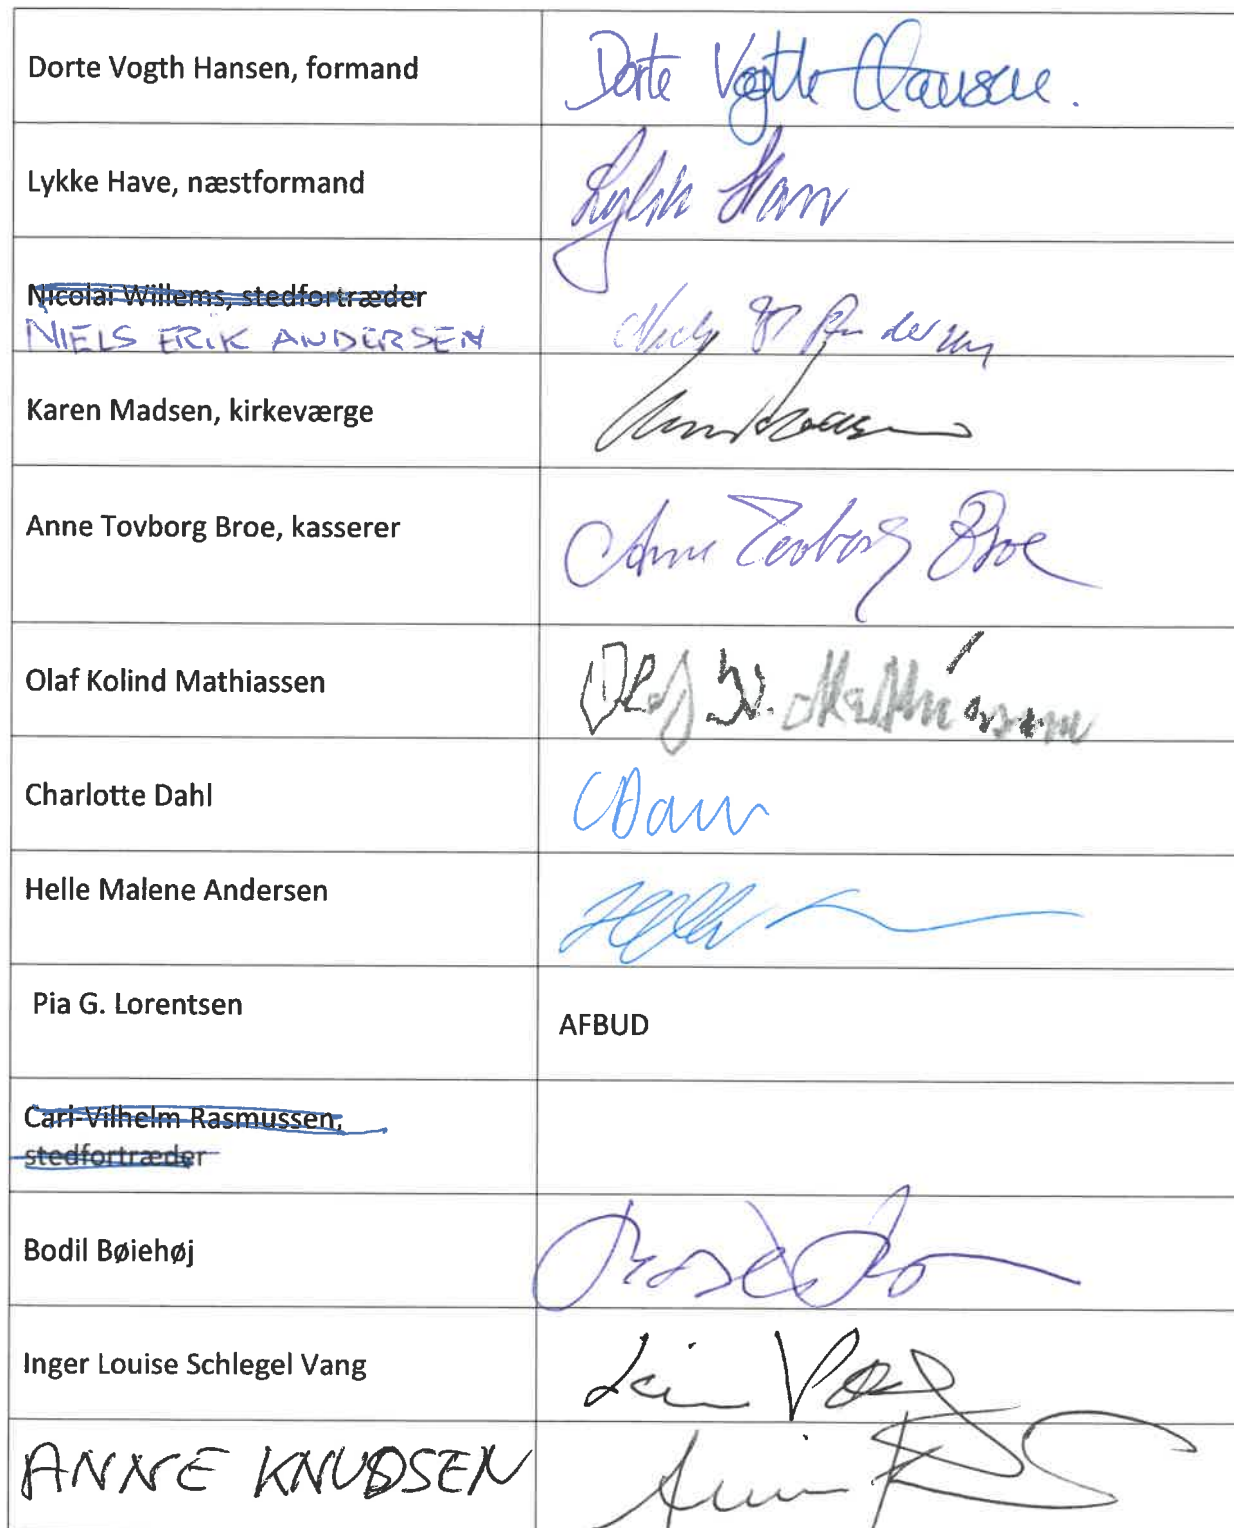 Dorte Vogth Hansen, formand
Dorte Vogth Hansen.
Lykke Have, næstformand
Lykke Have
Nicolai Willems, stedfortræder
NIELS ERIK ANDERSEN
Karen Madsen, kirkeværge
Anne Tovborg Broe, kasserer
Anne Tovborg Broe
Olaf Kolind Mathiassen
Olaf K. Mathiassen
Charlotte Dahl
CDahl
Helle Malene Andersen
Helle
Pia G. Lorentsen
AFBUD
Carl-Vilhelm Rasmussen,
stedfortræder
Bodil Bøiehøj
Inger Louise Schlegel Vang
Vang
ANNE KNUDSEN
Anne